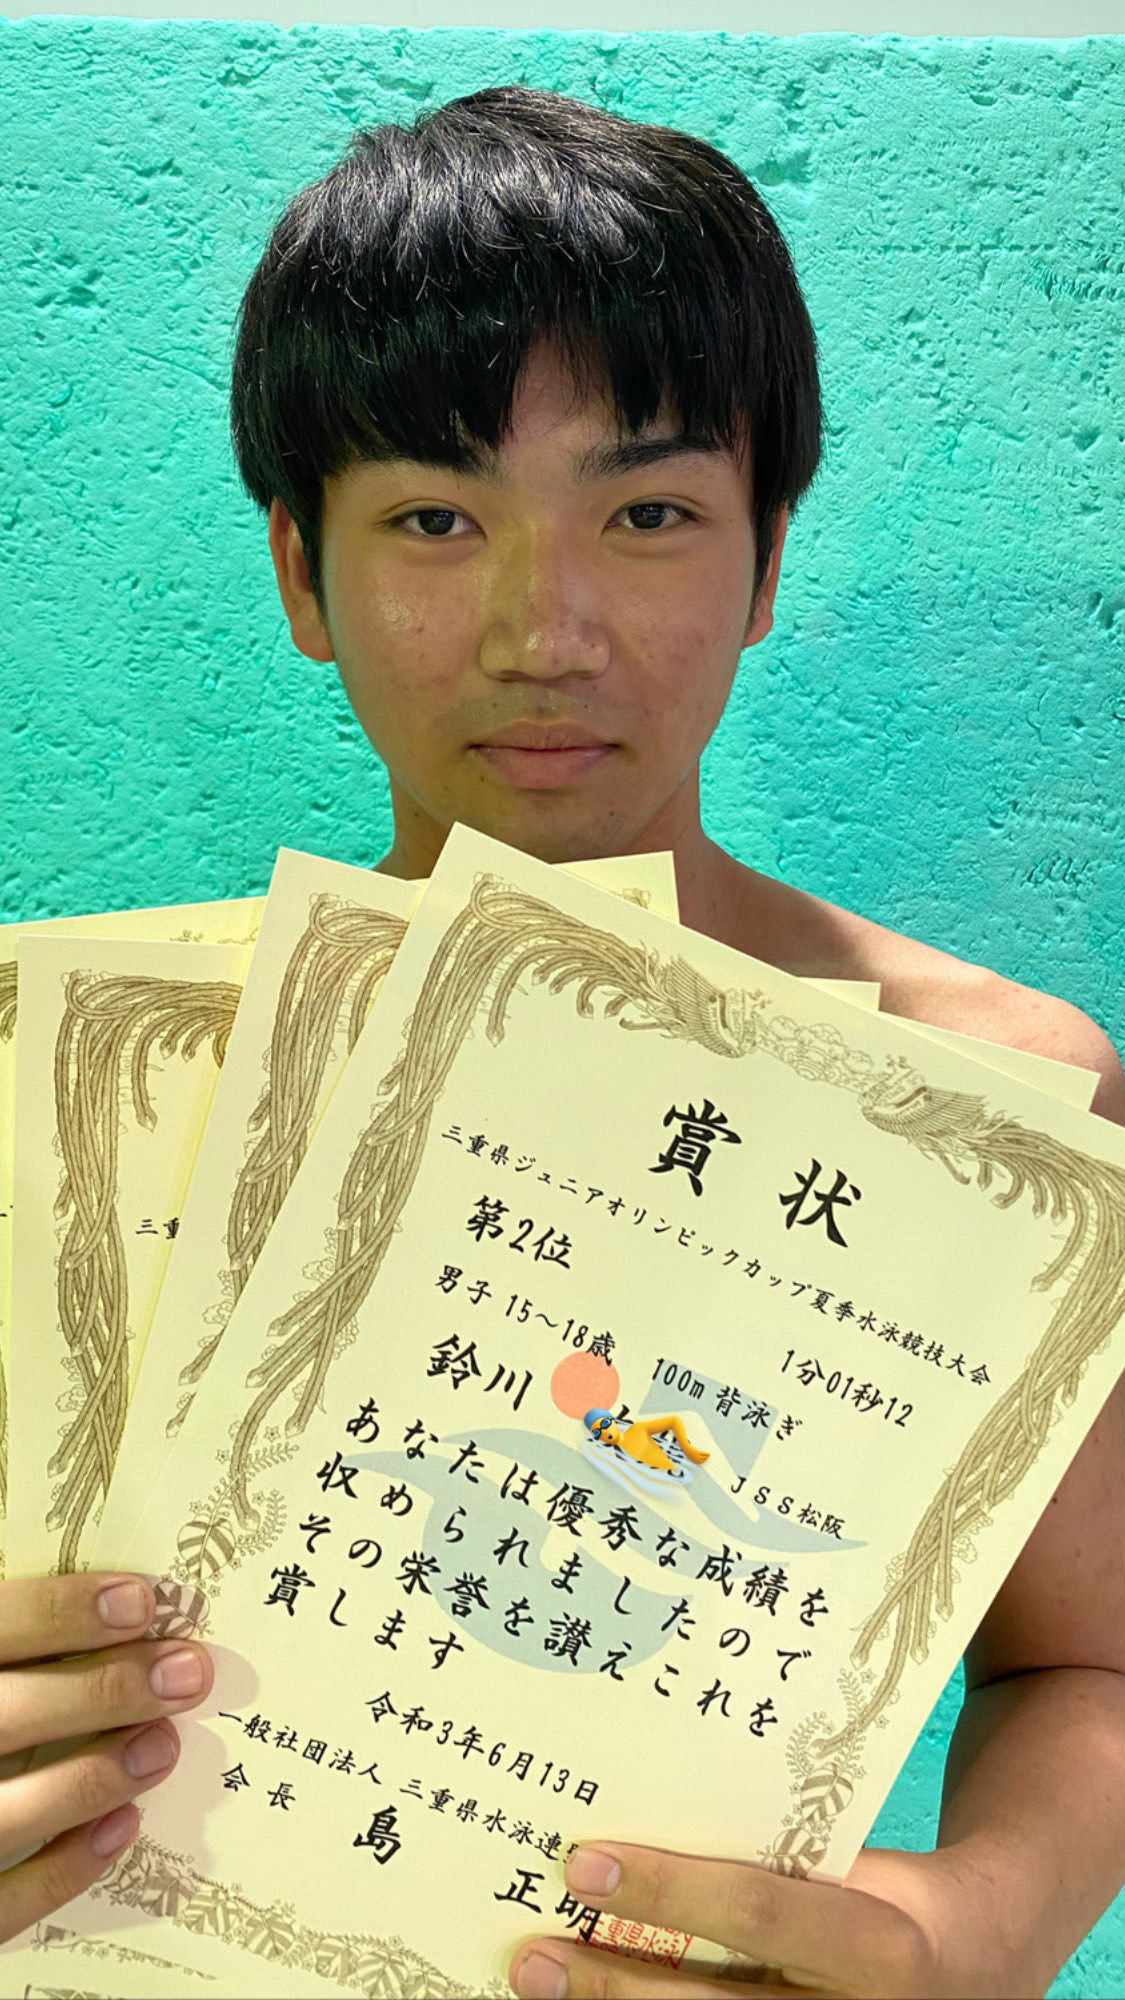 賞状
三重県ジュニアオリンピックカップ夏季水泳競技大会
第2位
1分01秒12
男子 15～18歳 100m 背泳ぎ
鈴川 JSS松阪
あなたは優秀な成績を
収められましたので
その栄誉を讃えこれを
賞します
令和3年6月13日
一般社団法人 三重県水泳連
会長 島 正明
三重